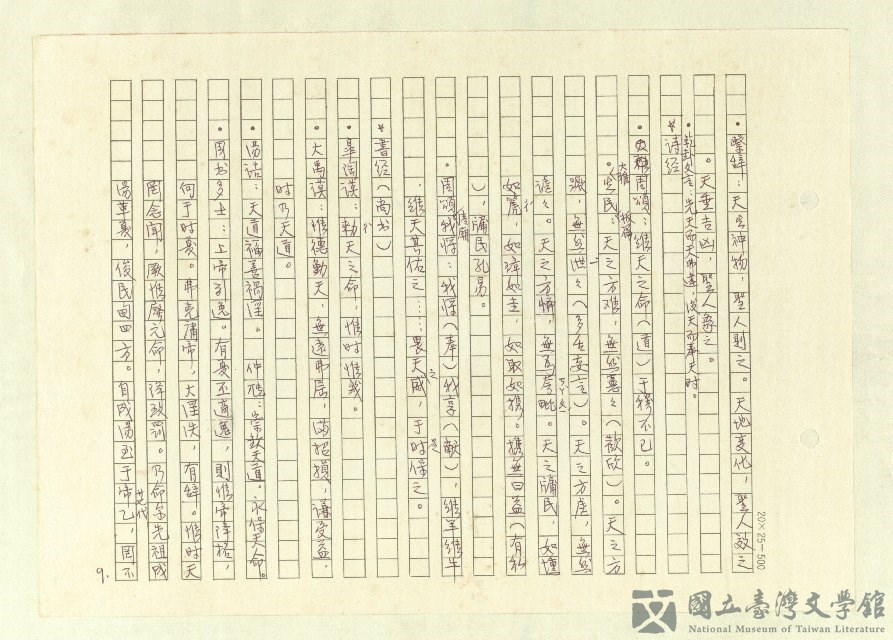 •繫辭：天生神物，聖人則之。天地變化，聖人效之
。天垂吉凶，聖人象之。
•乾卦文言：先天而天弗違，後天而奉天時。
*詩經
•周頌：維天之命（道）于穆不已。
大雅 板篇
•生民：天之方難，無然憲々（歡欣）。天之方
蹶，無然泄々（多生妄言）。天之方虐，無然
謔々。天之方懠，無為夸毗。天之牖民，如壎
如篪，如璋如圭，如取如攜。攜無曰益（有私
），牖民孔易。
•周頌我將：我將（奉）我享（獻），維羊維牛
，維天其佑之……畏天之威，于時保之。
*書經（尚书）
•皋陶謨：勅天之命，惟時惟幾。
•大禹謨：維德動天，無遠弗屆，滿招損，謙受益，
时乃天道。
•湯誥：天道福善禍淫。 仲虺：欽崇天道。永保天命。
•周书多士：上帝引逸。有夏不適逸，則惟帝降格，
何于时夏。弗克庸帝，大淫泆，有辭。惟时天
罔念聞，厥惟廢元命，降致罰。乃命尔先祖成
湯革夏，俊民甸四方。自成湯至于帝乙，罔不
9.
20×25=500
國立臺灣文學館
National Museum of Taiwan Literature